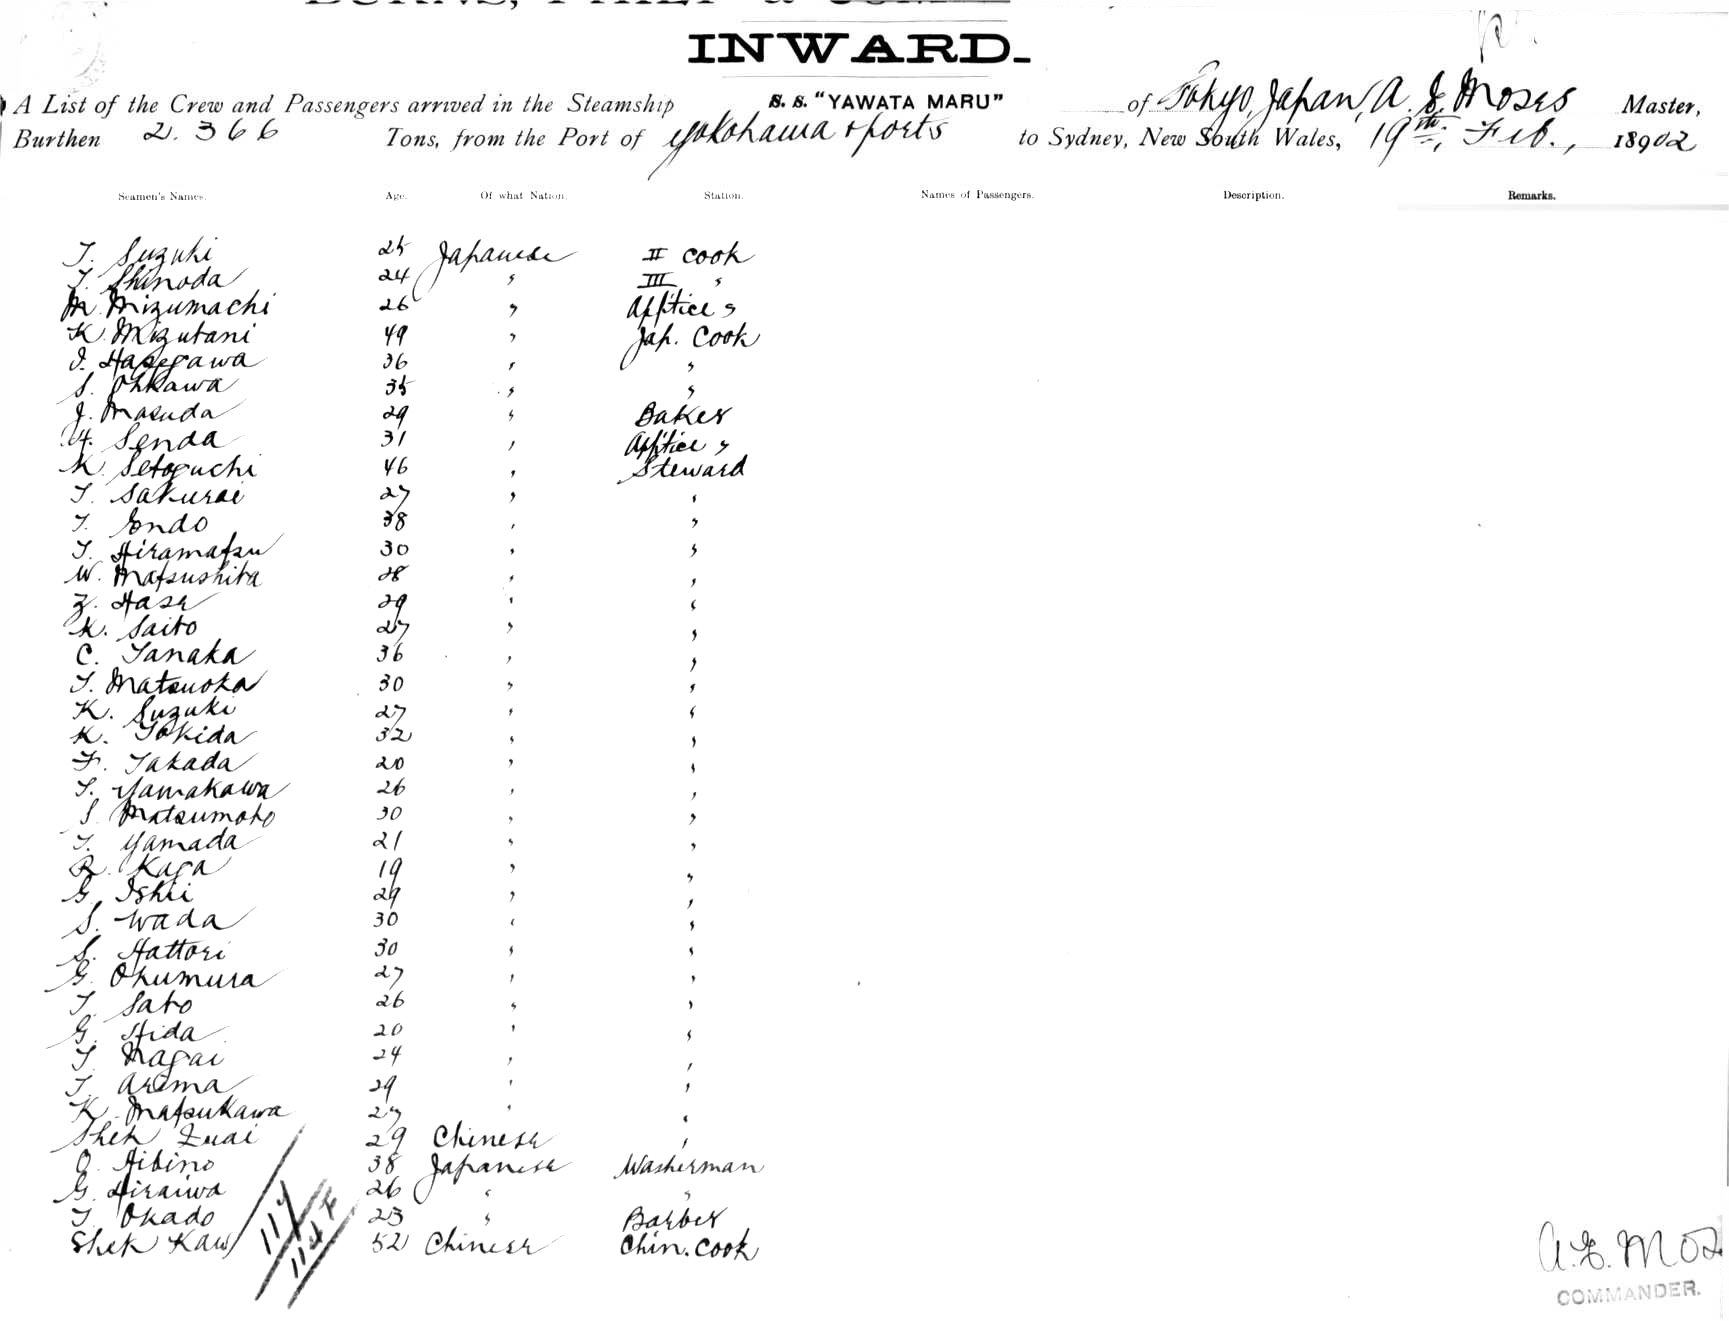 INWARD.
A List of the Crew and Passengers arrived in the Steamship S. S. "YAWATA MARU" of Tokyo, Japan, A. E. Moses Master,
Burthen 2.366 Tons, from the Port of Yokohama & ports to Sydney, New South Wales, 19th, Feb., 18902
Seamen's Names. Age. Of what Nation. Station. Names of Passengers. Description. Remarks.
T. Suzuki 25 Japanese II cook
T. Shinoda 24 " III "
M. Mizumachi 26 " App'tice "
K. Mizutani 49 " Jap. Cook
I. Hasegawa 36 " "
S. Ohkawa 35 " "
J. Masuda 29 " Baker
H. Senda 31 " App'tice "
K. Setoguchi 46 " Steward
T. Sakurai 27 " "
T. Endo 38 " "
T. Hiramatsu 30 " "
W. Matsushita 28 " "
Z. Hase 29 " "
K. Saito 27 " "
C. Tanaka 36 " "
T. Matsuoka 30 " "
K. Suzuki 27 " "
K. Tokida 32 " "
F. Takada 20 " "
T. Yamakawa 26 " "
S. Matsumoto 30 " "
T. Yamada 21 " "
R. Kaga 19 " "
G. Ishii 29 " "
S. Wada 30 " "
S. Hattori 30 " "
G. Okumura 27 " "
T. Sato 26 " "
G. Hida 20 " "
T. Nagai 24 " "
T. Arima 29 " "
K. Matsukawa 27 " "
Shek Zuai 29 Chinese "
O. Hibino 38 Japanese Washerman
G. Hiraiwa 26 " "
T. Okado 23 " Barber
Shek Kaw 52 Chinese Chin. Cook
A. E. Mos
COMMANDER.